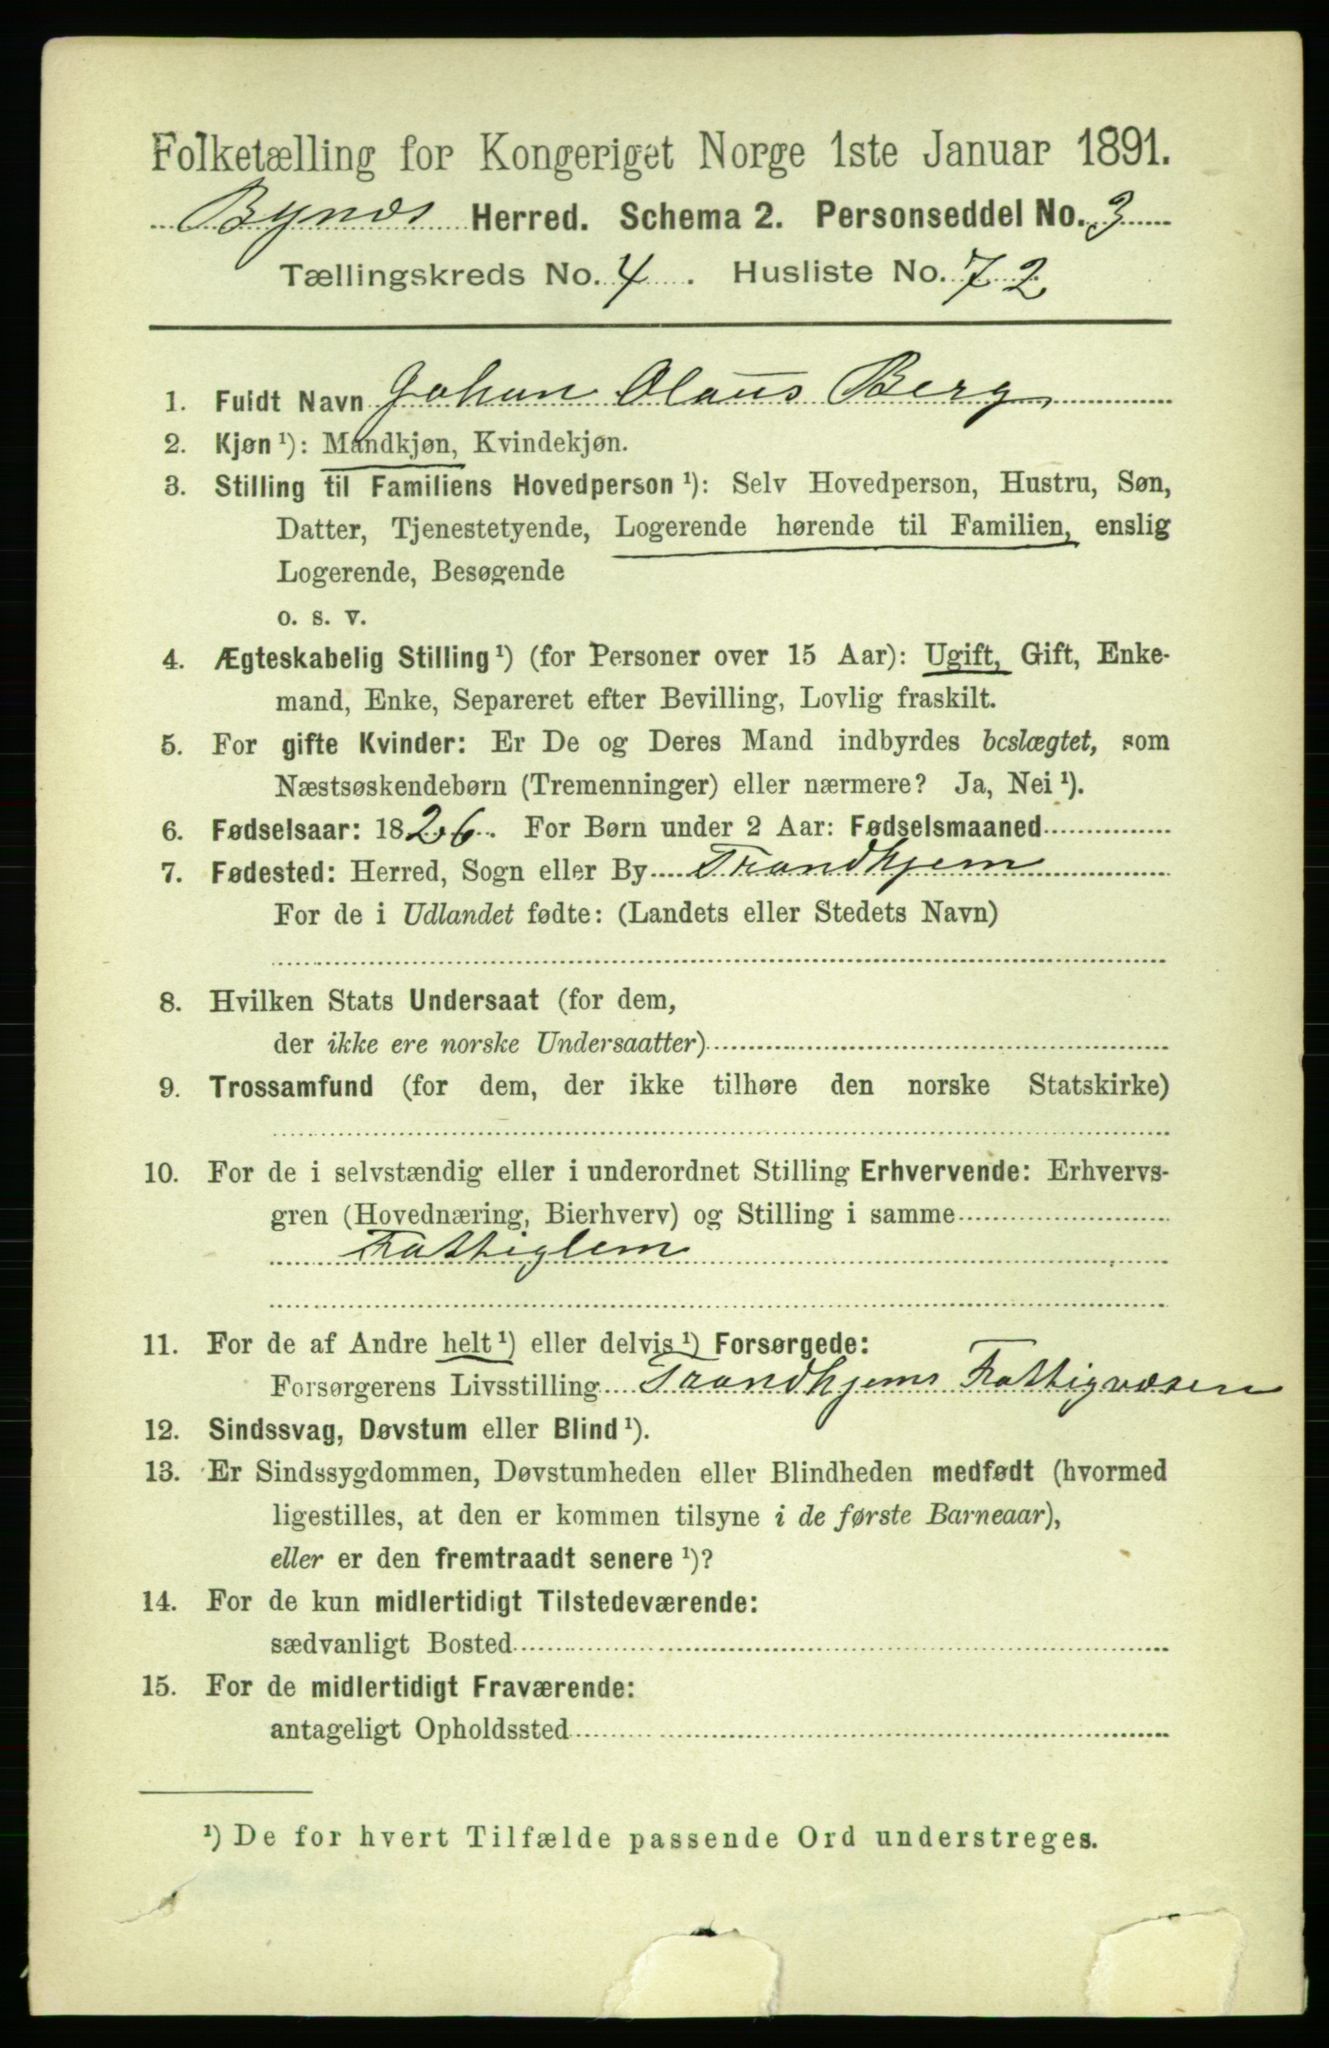 Folketælling for Kongeriget Norge 1ste Januar 1891.
Bynes Herred. Schema 2. Personseddel No. 3
Tællingskreds No. 4. Husliste No. 72
1. Fuldt Navn Johan Olaus Berg
2. Kjøn ¹): Mandkjøn, Kvindekjøn.
3. Stilling til Familiens Hovedperson ¹): Selv Hovedperson, Hustru, Søn,
Datter, Tjenestetyende, Logerende hørende til Familien, enslig
Logerende, Besøgende
o. s. v.
4. Ægteskabelig Stilling ¹) (for Personer over 15 Aar): Ugift, Gift, Enke-
mand, Enke, Separeret efter Bevilling, Lovlig fraskilt.
5. For gifte Kvinder: Er De og Deres Mand indbyrdes beslægtet, som
Næstsøskendebørn (Tremenninger) eller nærmere? Ja, Nei ¹).
6. Fødselsaar: 1826. For Børn under 2 Aar: Fødselsmaaned
7. Fødested: Herred, Sogn eller By Trondhjem
For de i Udlandet fødte: (Landets eller Stedets Navn)
8. Hvilken Stats Undersaat (for dem,
der ikke ere norske Undersaatter)
9. Trossamfund (for dem, der ikke tilhøre den norske Statskirke)
10. For de i selvstændig eller i underordnet Stilling Erhvervende: Erhvervs-
gren (Hovednæring, Bierhverv) og Stilling i samme
Fattiglem
11. For de af Andre helt ¹) eller delvis ¹) Forsørgede:
Forsørgerens Livsstilling Trondhjems Fattigvæsen
12. Sindssvag, Døvstum eller Blind ¹).
13. Er Sindssygdommen, Døvstumheden eller Blindheden medfødt (hvormed
ligestilles, at den er kommen tilsyne i de første Barneaar),
eller er den fremtraadt senere ¹)?
14. For de kun midlertidigt Tilstedeværende:
sædvanligt Bosted
15. For de midlertidigt Fraværende:
antageligt Opholdssted
¹) De for hvert Tilfælde passende Ord understreges.